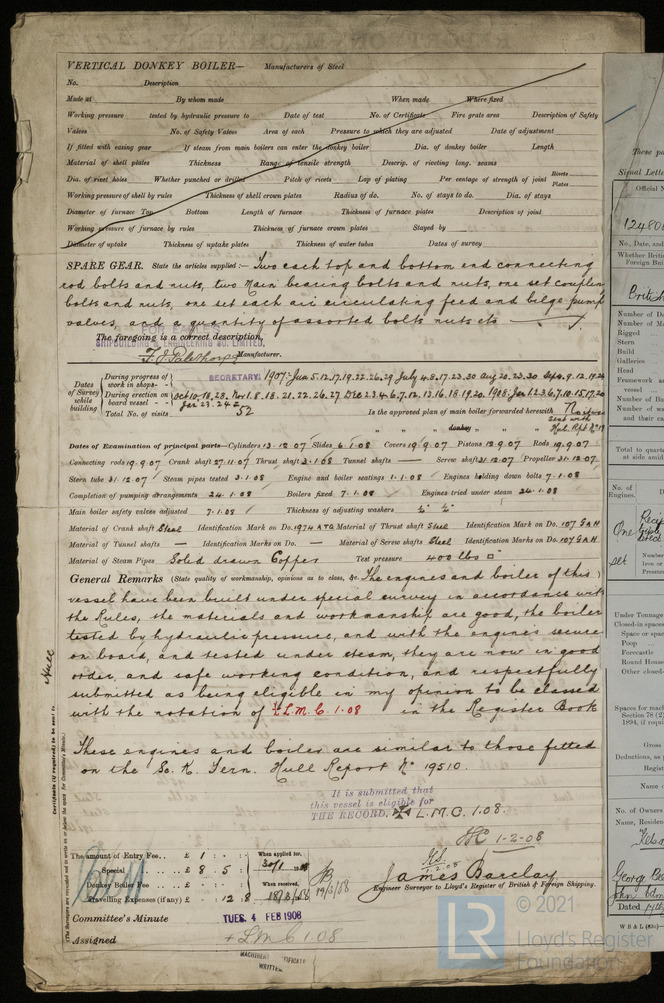 VERTICAL DONKEY BOILER— Manufacturers of Steel
No. Description
Made at By whom made When made Where fixed
Working pressure tested by hydraulic pressure to Date of test No. of Certificate Fire grate area Description of Safety
Valves No. of Safety Valves Area of each Pressure to which they are adjusted Date of adjustment
If fitted with easing gear If steam from main boilers can enter the donkey boiler Dia. of donkey boiler Length
Material of shell plates Thickness Range of tensile strength Descrip. of riveting long. seams
Dia. of rivet holes Whether punched or drilled Pitch of rivets Lap of plating Per centage of strength of joint Rivets Plates
Working pressure of shell by rules Thickness of shell crown plates Radius of do. No. of stays to do. Dia. of stays
Diameter of furnace Top Bottom Length of furnace Thickness of furnace plates Description of joint
Working pressure of furnace by rules Thickness of furnace crown plates Stayed by
Diameter of uptake Thickness of uptake plates Thickness of water tubes Dates of survey
SPARE GEAR. State the articles supplied:— Two each top and bottom end connecting
rod bolts and nuts, two main bearing bolts and nuts, one set coupling
bolts and nuts, one set each air circulating feed and bilge pump
valves, and a quantity of assorted bolts nuts etc
FOR EARLES
The foregoing is a correct description,
SHIPBUILDING & ENGINEERING CO. LIMITED.
Manufacturer.
SECRETARY.
Dates of Survey while building
During progress of work in shops - - 1907:- Jun 5.12.17.19.22.26.29 July 4.8.17.23.30 Aug 20.23.30 Sep 4.9.12.19.24
During erection on board vessel - - Oct 10.18.28. Nov 1.8.18.21.22.26.27 Dec 2.3.4.6.7.12.13.16.18.19.20. 1908: Jan 1.2.3.6.7.10.15.17.20
Jan 23.24.
Total No. of visits 52 Is the approved plan of main boiler forwarded herewith No
sent with
" " " donkey " " "
Hull Rpt No 19
Dates of Examination of principal parts—Cylinders 13.12.07 Slides 6.1.08 Covers 19.9.07 Pistons 12.9.07 Rods 19.9.07
Connecting rods 19.9.07 Crank shaft 27.11.07 Thrust shaft 3.1.08 Tunnel shafts — Screw shaft 31.12.07 Propeller 31.12.07
Stern tube 31.12.07 Steam pipes tested 3.1.08 Engine and boiler seatings 1.1.08 Engines holding down bolts 7.1.08
Completion of pumping arrangements 24.1.08 Boilers fixed 7.1.08 Engines tried under steam 24.1.08
Main boiler safety valves adjusted 7.1.08 Thickness of adjusting washers
Material of Crank shaft Steel Identification Mark on Do. 1974 ATQ Material of Thrust shaft Steel Identification Mark on Do. 107 GAH
Material of Tunnel shafts — Identification Marks on Do. — Material of Screw shafts Steel Identification Marks on Do. 107 GAH
Material of Steam Pipes Solid drawn Copper Test pressure 400 lbs □"
General Remarks (State quality of workmanship, opinions as to class, &c. The engines and boiler of this
vessel have been built under special survey in accordance with
the Rules, the materials and workmanship are good, the boiler
tested by hydraulic pressure, and with the engines secure
on board, and tested under steam, they are now in good
order, and safe working condition, and respectfully
submitted as being eligible in my opinion to be classed
with the notation of +L.M.C 1.08 in the Register Book
These engines and boiler are similar to those fitted
on the S.K. Fern. Hull Report No 19510.
It is submitted that
this vessel is eligible for
THE RECORD. + L.M.C. 1.08.
1-2-08
The amount of Entry Fee.. £ 1 : :
Special £ 8 : 5 :
Donkey Boiler Fee £ : :
Travelling Expenses (if any) £ : 12 8
When applied for,
30/1
When received,
James Barclay
Engineer Surveyor to Lloyd's Register of British & Foreign Shipping.
Committee's Minute TUES. 4 FEB 1908
Assigned + L.M.C 1.08
MACHINERY CERTIFICATE
WRITTEN.
Hull
Certificate (if required) to be sent to
(The Surveyors are requested not to write on or below the space for Committee's Minute.)
These pa
Signal Lette
Official N
12480
No., Date, and
Whether Briti
Foreign Bui
British
Number of De
Number of Ma
Rigged
Stern
Build
Galleries
Head
Framework a
vessel
Number of Bu
Number of wa
and their ca
Total to quarte
at side amid
No. of
Engines.
One
Under Tonnage
Closed-in spaces
Space or spa
Poop
Forecastle
Round House
Other closed-
Spaces for mach
Section 78 (2)
1894, if requi
Gross
Deductions, as p
Regist
Name o
No. of Owners
Name, Residen
George Be
John Edm
Dated 17th
© 2021
LR
Lloyd's Register
Foundation